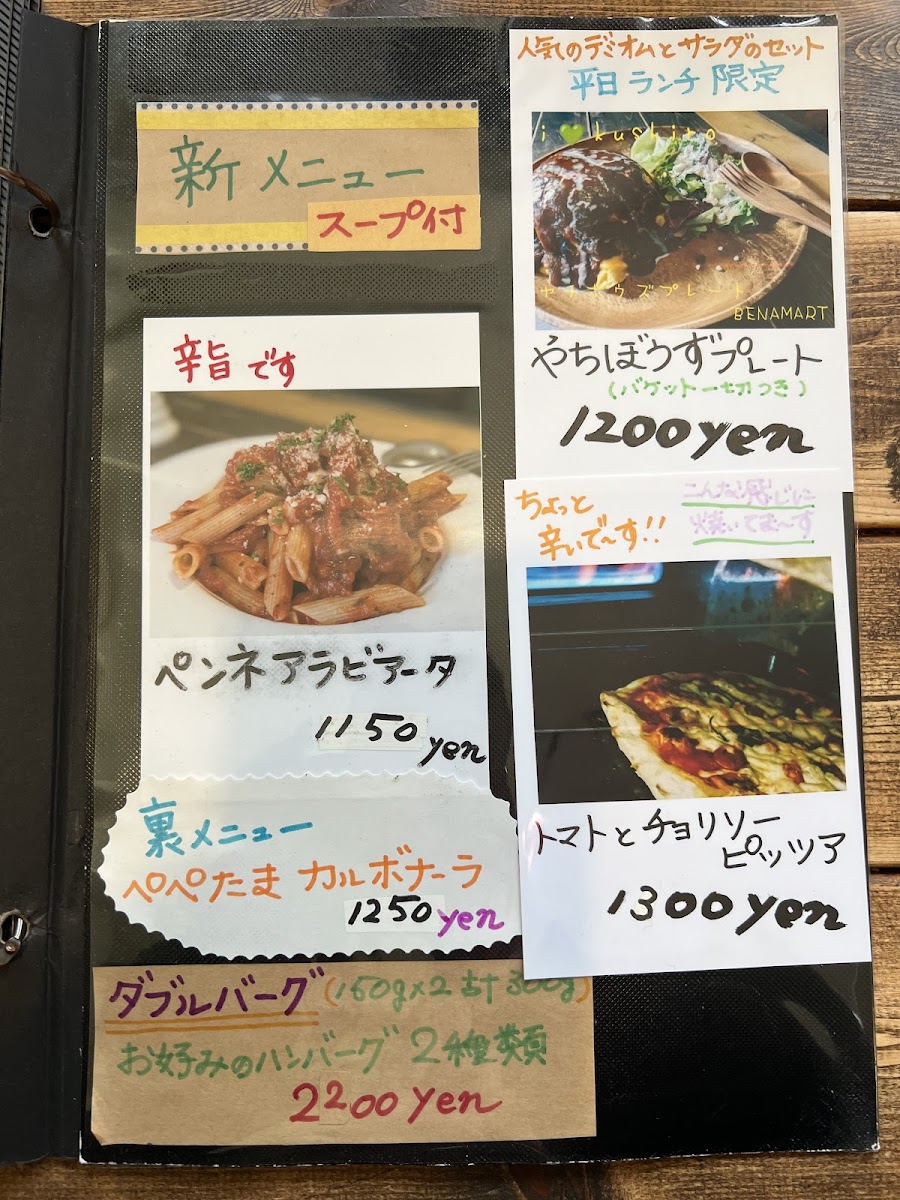 新メニュー
スープ付
辛旨です
ペンネアラビアータ
1150 yen
裏メニュー
ペペたま カルボナーラ
1250 yen
ダブルバーグ (150g×2 計300g)
お好みのハンバーグ 2種類
2200 yen
人気のデミオムとサラダのセット
平日ランチ限定
i 💚 kushito
やちぼうずプレート
BENAMART
やちぼうずプレート
(バゲット一切つき)
1200 yen
ちょっと
辛いで〜す!!
こんな感じに
焼いてま〜す
トマトとチョリソー
ピッツァ
1300 yen